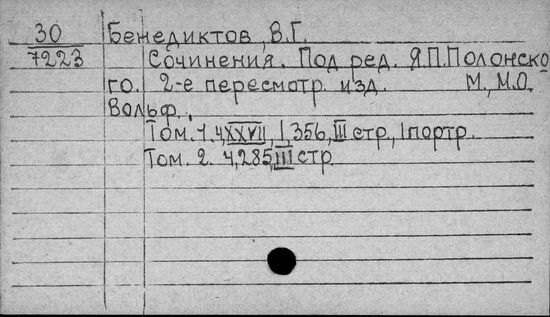 30 Бенедиктов, В.Г.
7223 Сочинения. Под ред. Я.П.Полонско
го. 2-е пересмотр. изд. М., М.О.
Вольф.,
Том. 1. 4, XXVII, 1, 356, III стр., 1 портр.
Том. 2. 4, 285, III стр.